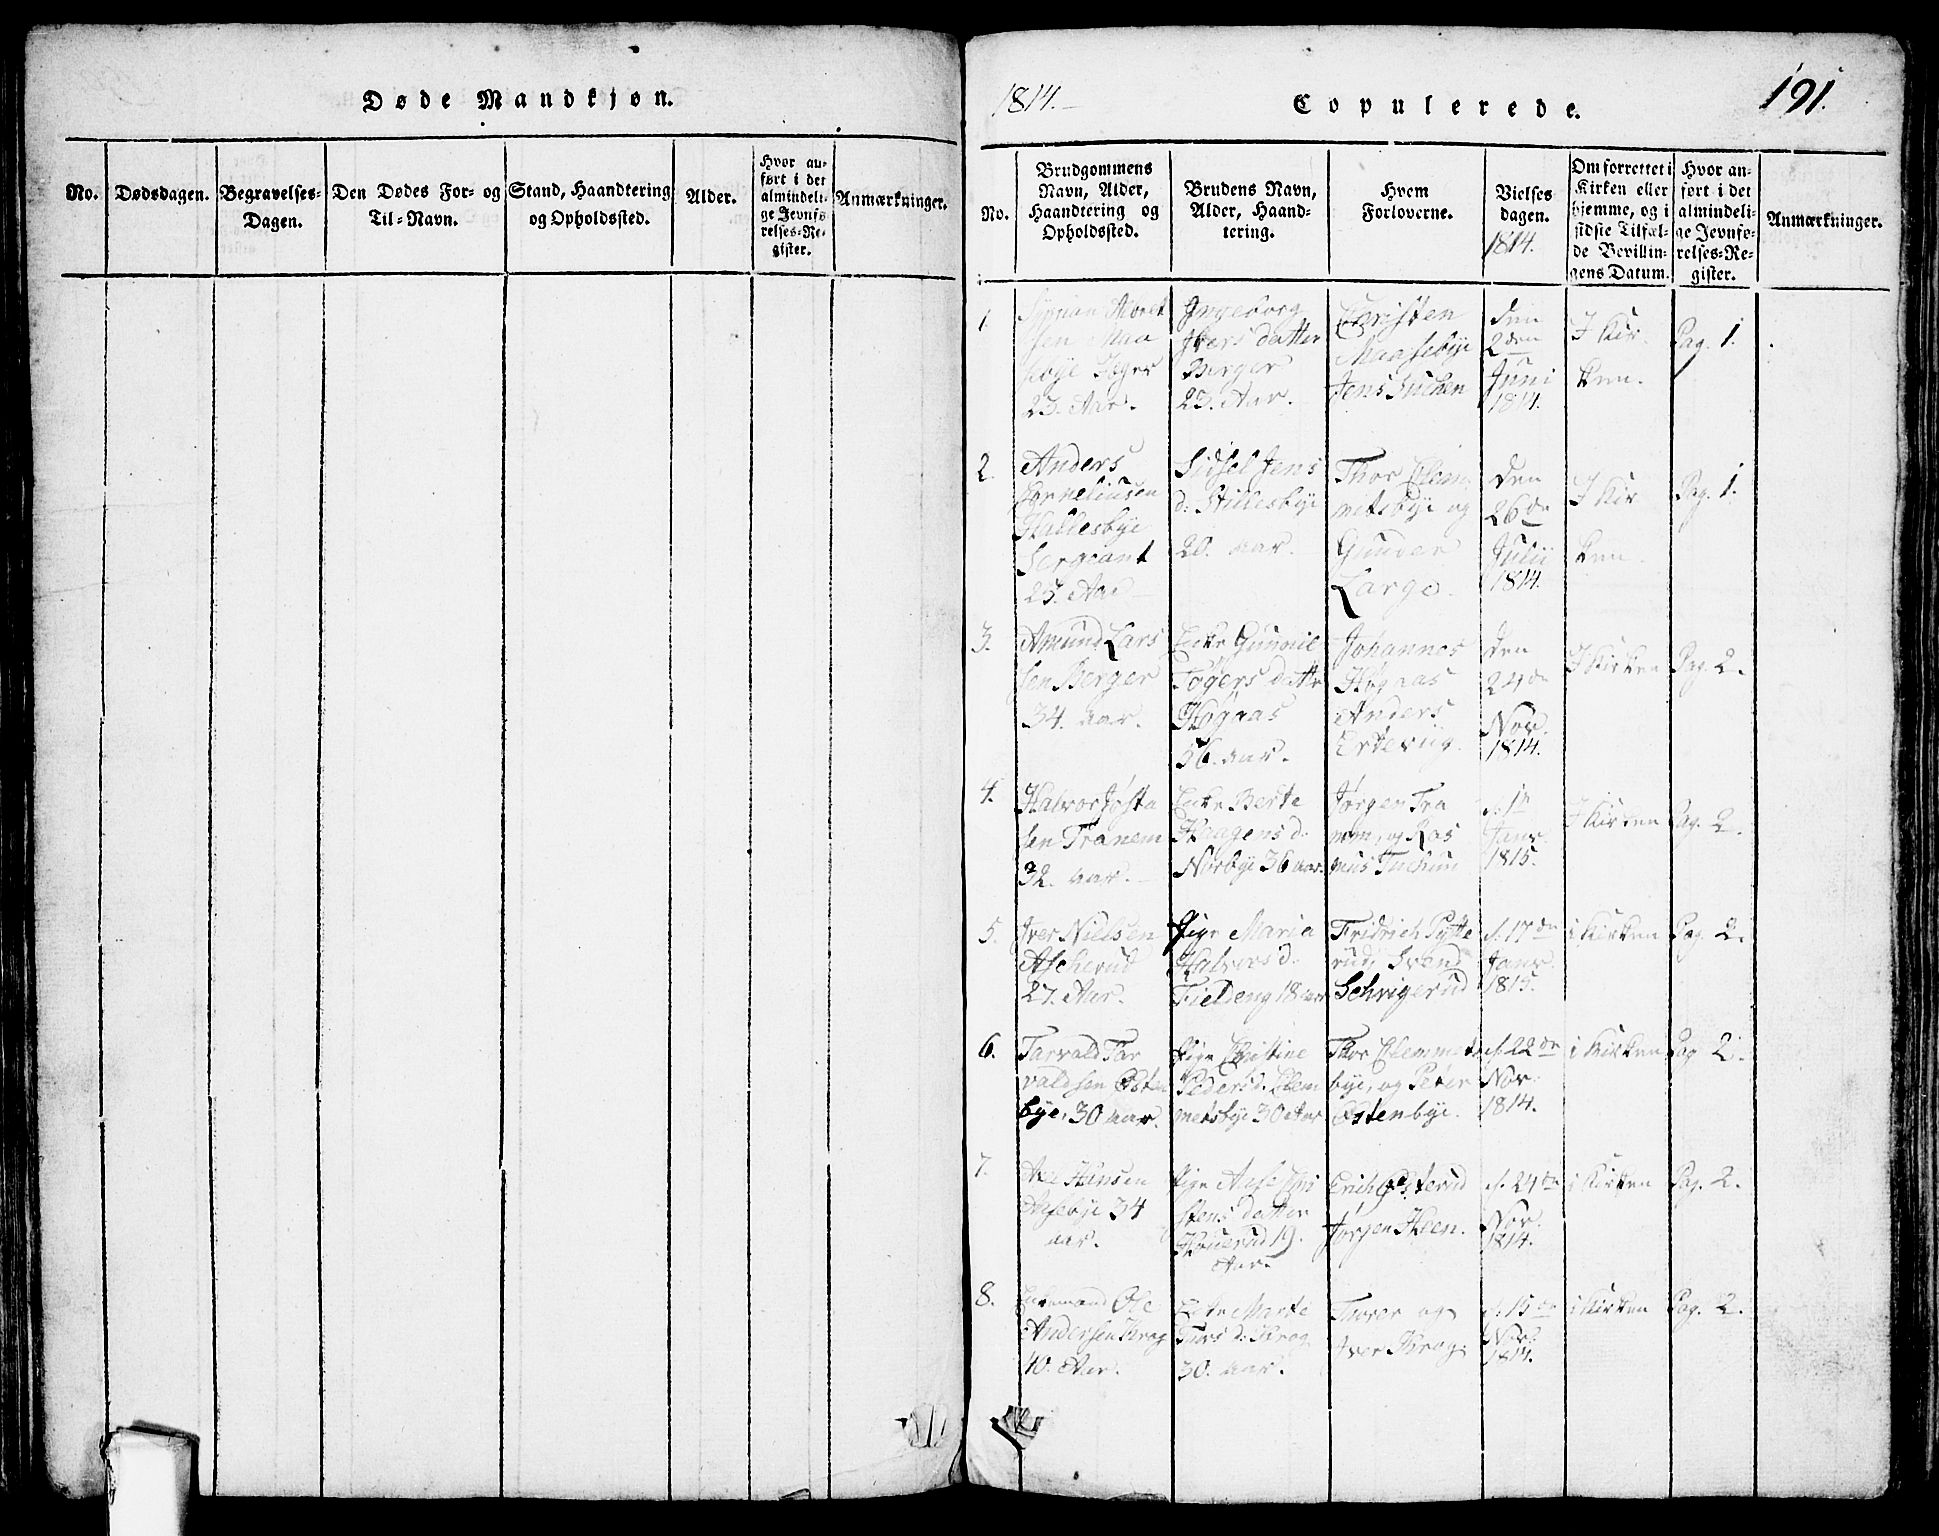 Døde Mandkjøn.
No.
Dødsdagen.
Begravelses-
Dagen.
Den Dødes For- og
Til-Navn.
Stand, Haandtering
og Opholdssted.
Alder.
Hvor an-
ført i det
almindeli-
ge Jevnfø-
relses-Re-
gister.
Anmærkninger.
1814.
Copulerede.
191.
No.
Brudgommens
Navn, Alder,
Haandtering og
Opholdssted.
Brudens Navn,
Alder, Haand-
tering.
Hvem
Forloverne.
Vielses
dagen.
1814.
Om forrettet i
Kirken eller
hjemme, og i
sidste Tilfæl-
de Bevillin-
gens Datum.
Hvor an-
ført i det
almindeli-
ge Jevnfø-
relses-Re-
gister.
Anmærkninger.
1
23. Aar.
Ingeborg
Ivers datter
Berger
23. Aar.
Christen
Jens
den
2den
Juni
1814.
I Kir-
ken.
Pag. 1.
2
Anders
Corneliusen
Haldesbye
Sergeant
25. Aar
Sidsel Jens
d:
20. aar.
Thor Clem
metsbye og
Gunder
Lange
den
26de
Julij
1814.
I Kir
ken.
Pag. 1.
3.
Amund Lars
sen Berger
34. aar.
Enke Gunnil
datter
Høgnas
56. aar.
Johannes
Høgnas
Anders
Ertevig.
den
24de
Nov.
1814.
I Kirken
Pag. 2.
4.
Halvor
sen Tranem
32. aar.
Enke Berte
Haagens d.
Norbye 36 aar.
Jørgen Tra
nem, og Ras
mus
d. 1n
Janr.
1815.
I Kirken
Pag. 2.
5.
Iver Nielsen
Ascherud
27. Aar.
Pige Maria
Halvors d.
Fieldeng 18 aar
Fridrich Pytte
rud, Svend
Schvigerud
d. 17de
Janr.
1815.
i Kirken
Pag. 2.
6.
Tarvald Tar
valdsen Østen
bye, 30 aar.
Pige Christine
Peders d. Clem
metsbye 30 Aar
Thor Clemmets
bye, og Peter
Østenbye.
d. 22de
Nov.
1814.
i Kirken
Pag 2.
7.
Hansen
34
aar.
Pige
stens datter
19.
Aar.
Erich Østerud
Jørgen Heen.
d. 24de
Nov.
1814.
i Kirken
Pag. 2.
8.
Enkemand Ole
Andersen Krog
40. Aar.
Enke Marte
d: Krog
30. aar.
Thorer og
Iver Krog.
d. 15de
Nov.
1814.
i Kirken
Pag. 2.